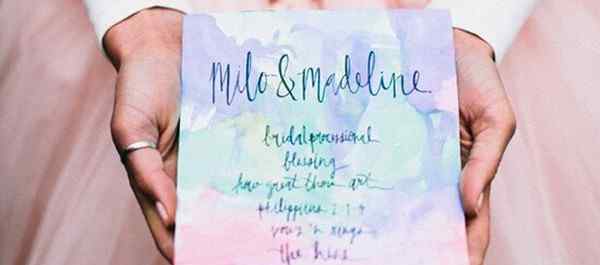 Milo & Madeline.
bridal processional
blessing
how great thou art
philippians 2:1-4
vows 'n rings
the kiss